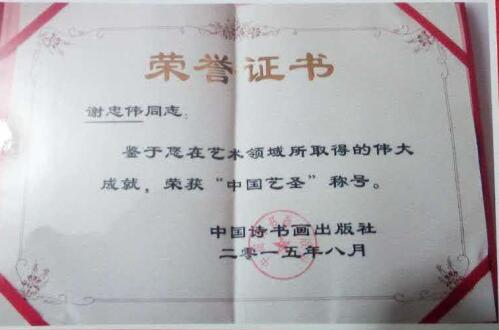 荣誉证书
谢忠伟同志:
鉴于您在艺术领域所取得的伟大
成就，荣获“中国艺圣”称号。
中国诗书画出版社
二零一五年八月